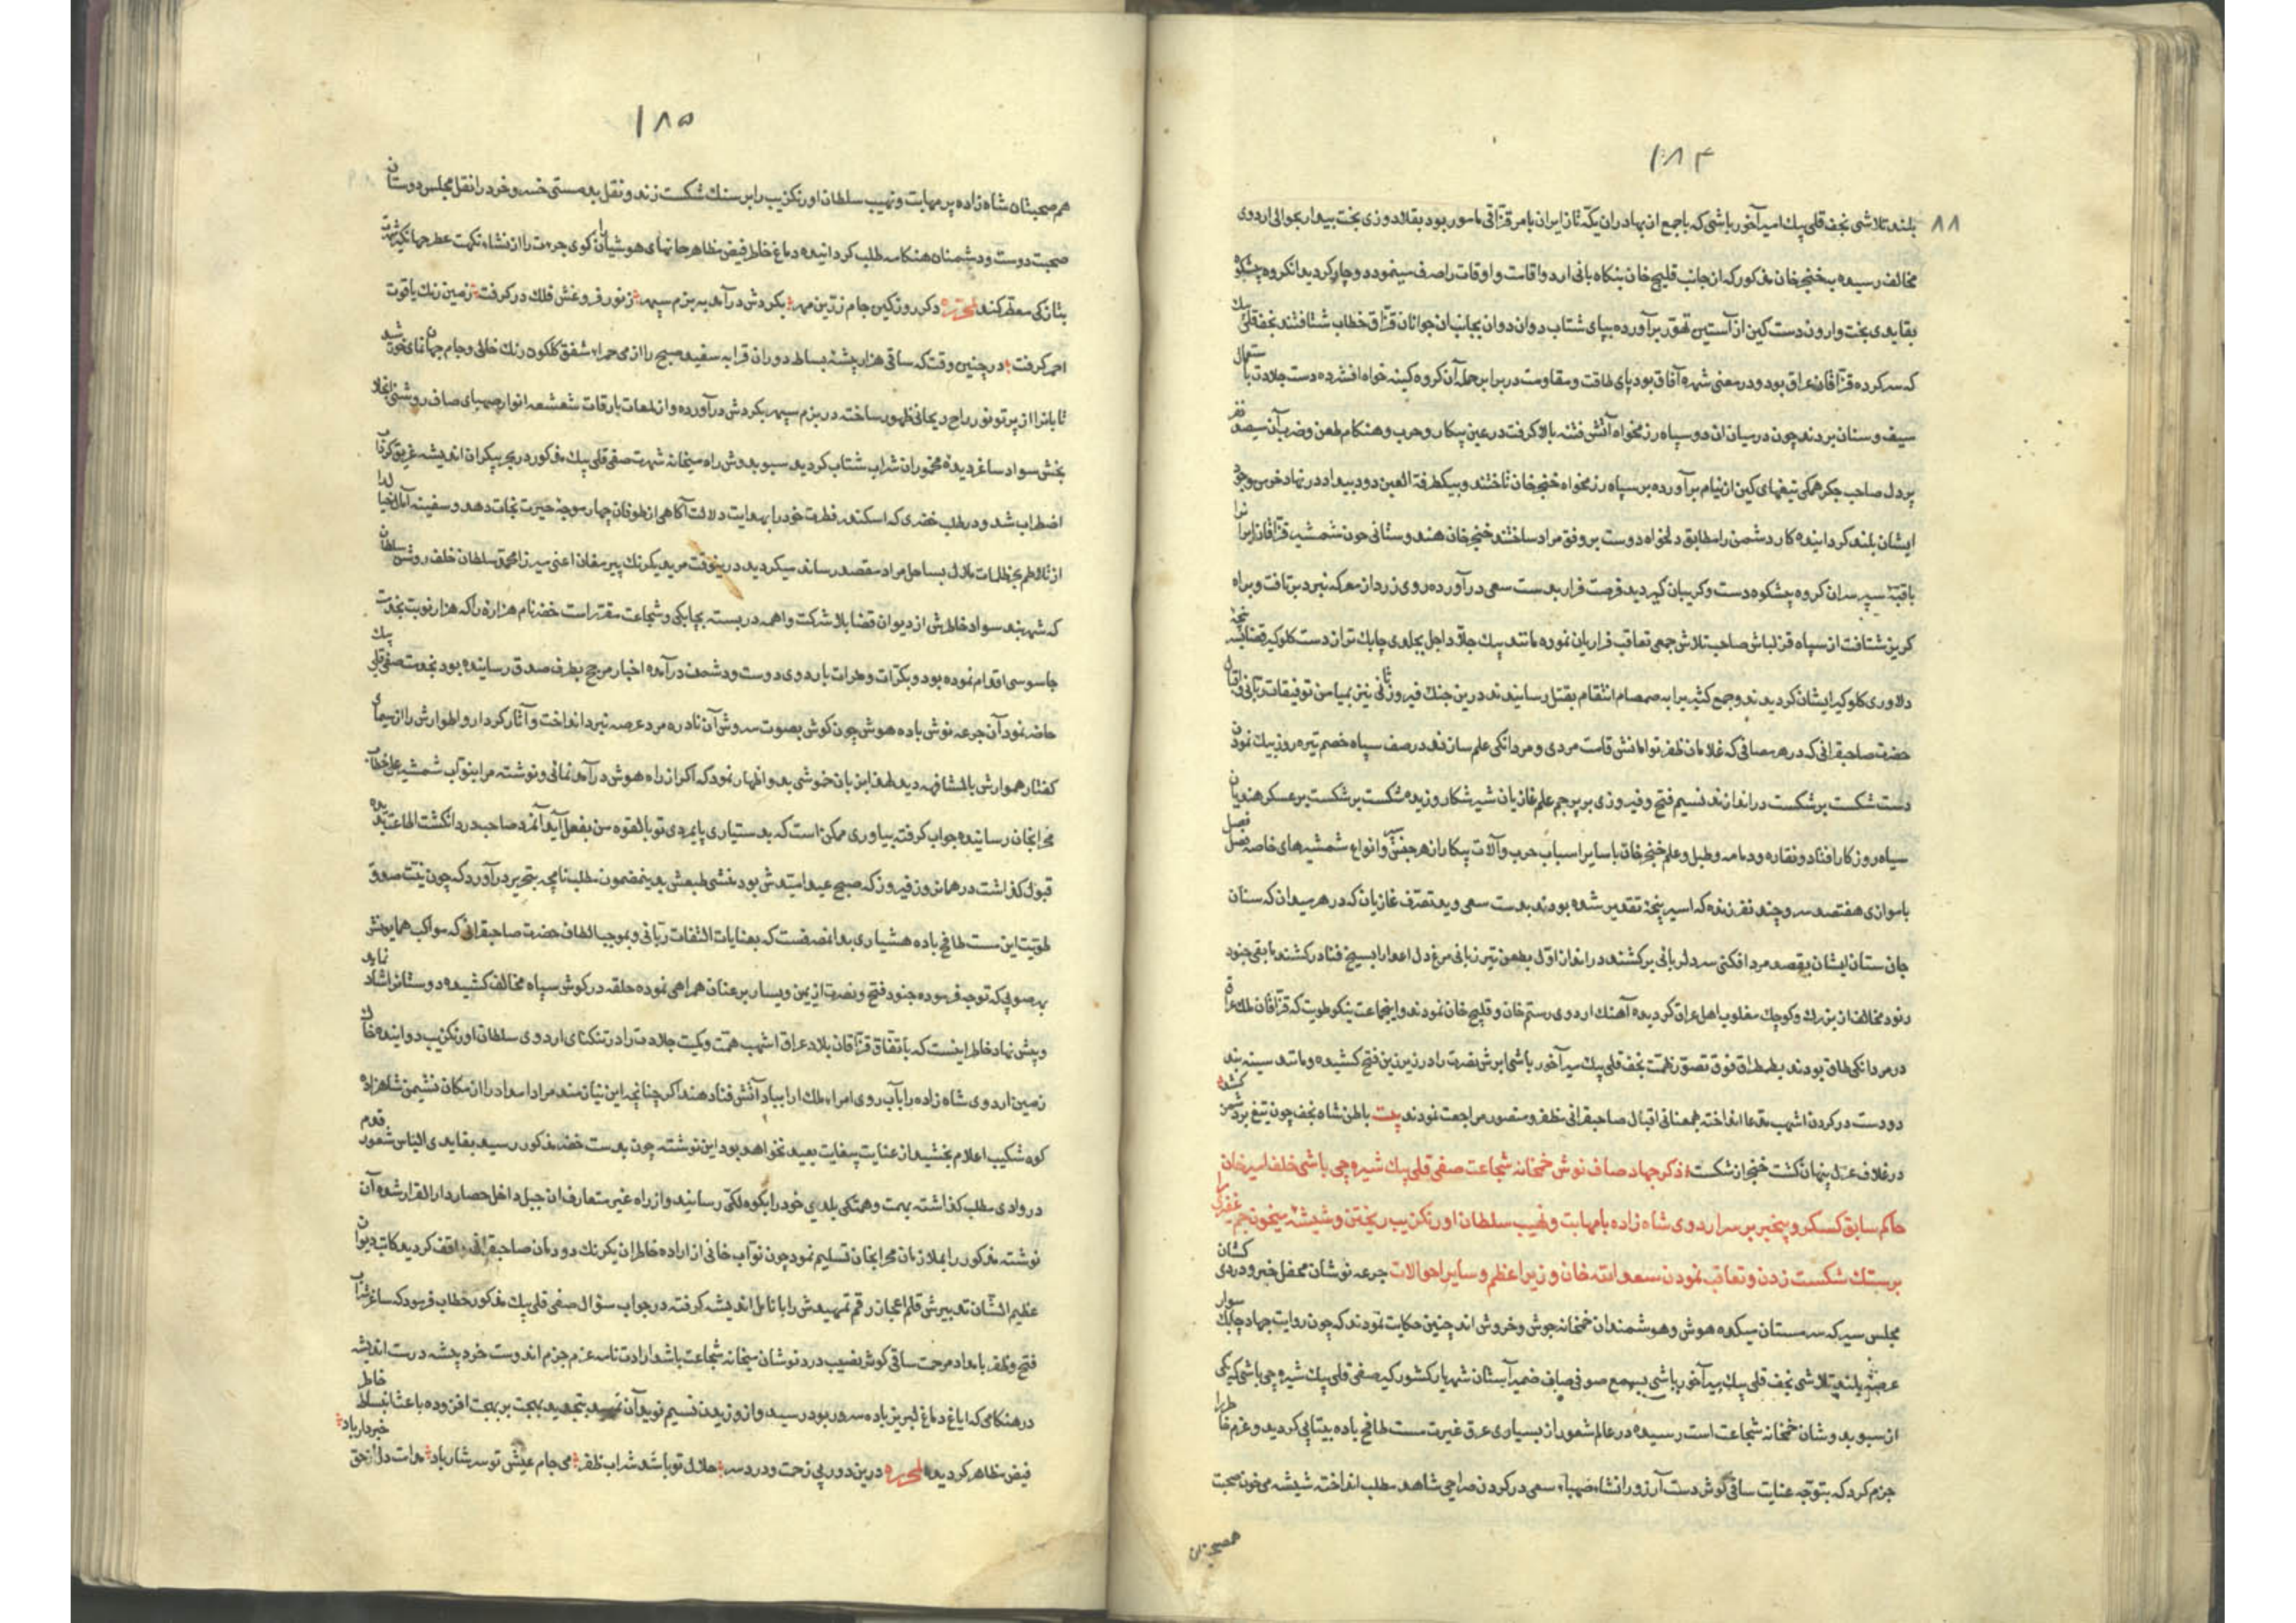 ۱۸۴
۸۸
بلند تلاشی نجف قلی بیك امیرآخور باشی که با جمع از بهادران یکه تاز ایران بامر قزاقی مامور بود بقلاوزی بخت بیدار بحوالی اردوی
مخالف رسیده بخنجر خان مذکور که از جانب قلیج خان بنکاه بانی اردو اقامت و اوقات را صرف مینمود دوچار کردید آنکروه
بقایدی بخت وارون دست کین از آستین تهور برآورده بپای شتاب دوان دوان بجانب آن جوانان قزاق خطاب شتافتند نجف قلی بیك
که سرکرده قزاقان عراق بود و در معنی شهره آفاق بود پای طاقت و مقاومت در برابر حمله آن کروه کینه خواه افشرده دست جلادت با ستعمال
سیف و سنان بردند چون در میان ان دو سپاه رزمخواه آتش فتنه بالا کرفت در عین پیکار و حرب و هنکام طعن و ضرب آن سیصد نفر
پر دل صاحب جکر همکی تیغهای کین از نیام برآورده بر سپاه رزمخواه خنجر خان تاختند و بیکطرفة العین دود بیداد در نهاد خرمن وجود
ایشان بلند کردانیده کار دشمن را مطابق دلخواه دوست بر وفق مراد ساختند خنجر خان هندوستانی چون شمشیر قزاقانرا
سپر سران کروه دست و کریبان کردید فرصت فرار بدست سعی درآورده روی زرد از معرکه نبرد برتافت و براه
کریز شتافت از سپاه قزلباش صاحب تلاش جمعی تعاقب فراریان نموده مانند پیك اجل بجلدی چابك تر از دست کلوکیر قضا پنجه
دلاوری کلوکیر ایشان کردیدند و جمع کثیر را به صمصام انتقام بقتل رسانیدند درین جنك فیروزی نیز بمیامن توفیقات ربانی و اقبال
حضرت صاحبقرانی که در هر مصافی که غلامان ظفر توامانش قامت مردی و مردانکی علم سازند در صف سپاه خصم تیره روز بیك نمودن
دست شکست بر شکست در اندازند نسیم فتح و فیروزی بر پرچم علم غازیان شیر شکار وزیده شکست بر شکست بر عسکر هندیان
سیاه روزکار افتاد و نقاره و دمامه و طبل و علم خنجر خان با سایر اسباب حرب و آلات پیکار از هر جنس و انواع شمشیرهای خاصه فصل
باموازی هفتصد سر و چند نفر زنده که اسیر پنجه تقدیر شده بودند بدست سعی و ید تصرف غازیان که در هر میدان که سنان
جان ستان ایشان بقصد مرد افکنی سر دلربائی برکشند در انداز اول بطعن تیر زبانی مرغ دل اعدا را بسیخ فنا در کشند مابقی جنود
رنود مخالف از بزرك و کوچك مغلوب اهل عراق کردیده آهنك اردوی رستم خان و قلیج خان نمودند و اینجماعت نیکو طویت که قزاقان ملك عراق
در مردانکی طاق بودند بطمطراق فوق تصور همت نجف قلی بیك میرآخور باشی ابرش نصرت را در زیر زین فتح کشیده و مانند سینه بند
دو دست در کردن اشهب مدعا انداخته بهمعنانی اقبال صاحبقرانی مظفر و منصور مراجعت نمودند بیت باطن شاه نجف چون تیغ بر دشمن کشد
در غلاف عدل پنهان کشت خنجر از شکست ذکر جهاد صاف نوش خمخانه شجاعت صفی قلی بیك شیره چی باشی خلف امیر خان
حاکم سابق کسکر و بیخبر بر سر اردوی شاه زاده با مهابت و نهیب سلطان اورنکزیب ریختن و شیشه میخون جم غفیری را
بر سنك شکست زدن و تعاقب نمودن سعد الله خان وزیر اعظم و سایر احوالات جرعه نوشان محفل خبر و دردی کشان
مجلس سیر که سرمستان میکده هوش و هوشمندان خمخانه جوش و خروش اند چنین حکایت نمودند که چون روایت جهاد چابك سوار
عرصه بلند تلاشی نجف قلی بیك میرآخور باشی بسمع صوفی صاف ضمیر آستان شهریار کشورکیر صفی قلی بیك شیره چی باشی که یکی
از سبو بدوشان خمخانه شجاعت است رسیده در عالم شعور از بسیاری عرق غیرت مست طافح باده بیتابی کردید و عزم خاطر را
جزم کرد که بتوجه عنایت ساقی کوثر دست آرزو را نشاء صهباء سعی در کردن صراحی شاهد مطلب انداخته شیشه می خون صحبت
همصحبتان
۱۸۵
هم صحبتان شاه زاده پر مهابت و نهیب سلطان اورنکزیب را بر سنك شکست زند و نقل بد مستی خسرو خرد را نقل مجلس دوستان
صحبت دوست و دشمنان هنکامه طلب کردانیده دماغ خاطر فیض مظاهر جانهای هوشیاران کوی جرءت را از نشاء نکهت عطر جهانکیر شهرت
بتازکی معطر کند لمحرره دکر روز کین جام زرین مهر بکردش درآمد به بزم سپهر ز نور فروغش فلك در کرفت زمین رنك یاقوت
احمر کرفت در چنین وقت که ساقی هزار پیشه بساط دوران قرابه سفید صبح را از می حمراء شفق کلکون رنك خالی و جام جهان نمای خورشید
تابانرا از پرتو نور راح ریحانی ظهور ساخته در بزم سپهر بکردش درآورده و از لمعات بارقات شعشعه انوار صهبای صاف روشنی
بخش سواد ساغر دیده مخموران شراب شتاب کردید سبو بدوش راه میخانه شهرت صفی قلی بیك مذکور در بحر بیکران اندیشه غریق کرداب
اضطراب شد و در طلب خضری که اسکندر فطرت خود را بهدایت دلالت آکاهی از طوفان چهار موجه حیرت نجات دهد و سفینه آمال
از تلاطم بحر ظلمات ملال بساحل مراد مقصد رساند میکردید درینوقت مرید یکرنك پیر مغان اعنی میرزا محمد سلطان خلف روشن سلطان
که شهربند سواد خاطرش از دیوان قضا بلا شرکت واهمه دربسته بچابکی و شجاعت مقرر است خضر نام هزاره را که هزار نوبت بخدمت
جاسوسی اقدام نموده بود و بکرات و مرات باردوی دوست و دشمن درآمده اخبار مرجح بطرف صدق رسانیده بود بخدمت صفی قلی بیك
حاضر نمود آن جرعه نوش باده هوش چون کوش بصوت سروش آن نادره مرد عرصه نبرد انداخت و آثار کردار و اطوارش را از سیمای
کفتار هموارش بالمشافهه دید بزبان خوشی و اظهار نمود که اکر از راه هوش درآمد نمائی و نوشته مرا بنواب شمشیر علی خطاب
محرابخان رسانیده جواب کرفته بیاوری ممکن است که بدستیاری پایمردی تو بالقوه من بفعل آید آنمرد صاحب درد انکشت اطاعت بدیده
قبول کذاشت در همان روز فیروز که صبح عید امیدش بود منشی طبعش بدینمضمون مطلب نامچه بتحریر درآورد که چون نیت صدق
طویت این مست طافح باده هشیاری بدانصرفست که بعنایات التفات ربانی و بموجب الطاف حضرت صاحبقرانی که مواکب همایونش
بهر صوبی که توجه فرموده جنود فتح و نصرت از یمین و یسار بر عنان همراهی نموده حلقه در کوش سپاه مخالف کشیده دوستانرا شاد نماید
و پیش نهاد خاطر اینست که باتفاق قزاقان بلاد عراق اشهب همت و کمیت جلادت را در تنکنای اردوی سلطان اورنکزیب دوانیده خاك
زمین اردوی شاه زاده را بآب روی امراء ملك آرا بباد آتش فنا دهند اکر چنانچه این نیازمند مراد امداد را از مکان نشیمن شاهزاده
کوه شکیب اعلام بخشید از عنایت بیغایت بعید نخواهد بود این نوشته چون بدست خضر مذکور رسید بقایدی الیاس شعور قدم
در وادی مطلب کذاشته بهمت و همتکی بلدی خود را بکوه لکی رسانید و از راه غیر متعارف از جبل داخل حصار دار القرار شده آن
نوشته مذکور را بملازمان محرابخان تسلیم نمود چون نواب خانی از اراده خاطر ان یکرنك دودمان صاحبقرانی واقف کردید کاتب دیوان
عظیم الشان تدبیرش قلم اعجاز رقم تمهیدش را با نامل اندیشه کرفته در جواب سؤال صفی قلی بیك مذکور خطاب فرمود که ساغر شراب
فتح و ظفر بامداد مرحمت ساقی کوثر نصیب دردنوشان میخانه شجاعت باشد ارادت نامه عزم جزم اندوست خرد پیشه درست اندیشه
در هنکامی که ایاغ دماغ لبریز باده سرور بود در رسید و از وزیدن نسیم نوید آن تمهید بهجت بر بهجت افزوده باعث انبساط خاطر
فیض مظاهر کردید لمحرره درین دور بی زحمت و دردسر حلال تو باشد شراب ظفر می جام عیش تو سرشار باد مدامت دل از حق خبردار باد